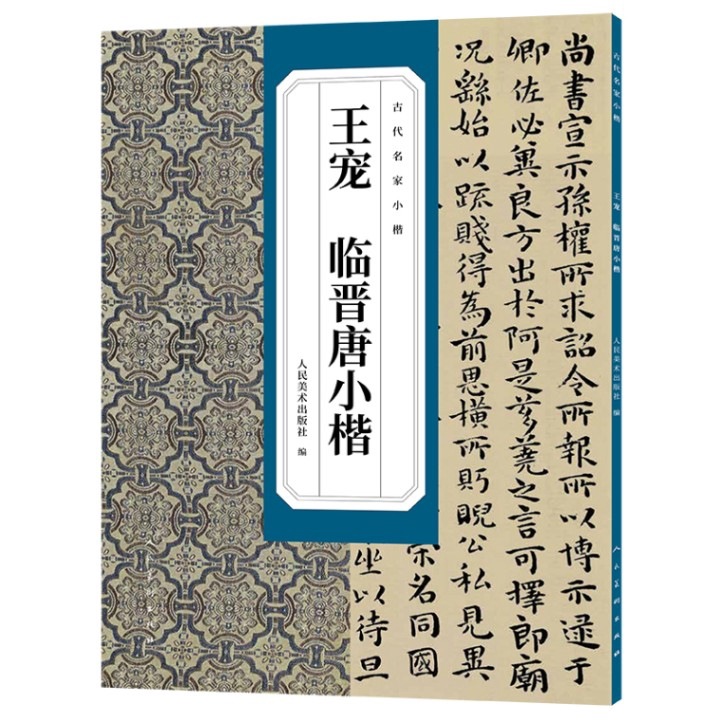 古代名家小楷
王宠 临晋唐小楷
人民美术出版社 编
尚書宣示孫權所求詔令所報所以博示逮于
卿佐必冀良方出於阿是芻蕘之言可擇郎廟
況繇始以疏賤得為前恩橫所眄睨公私見異
名同國
坐以待旦
古代名家小楷 王宠 临晋唐小楷 人民美术出版社 编
人民美術出版社